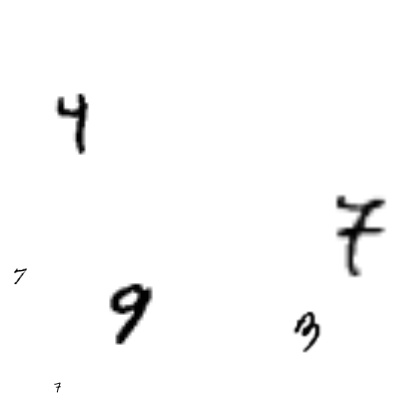 4
7
7
9
3
7